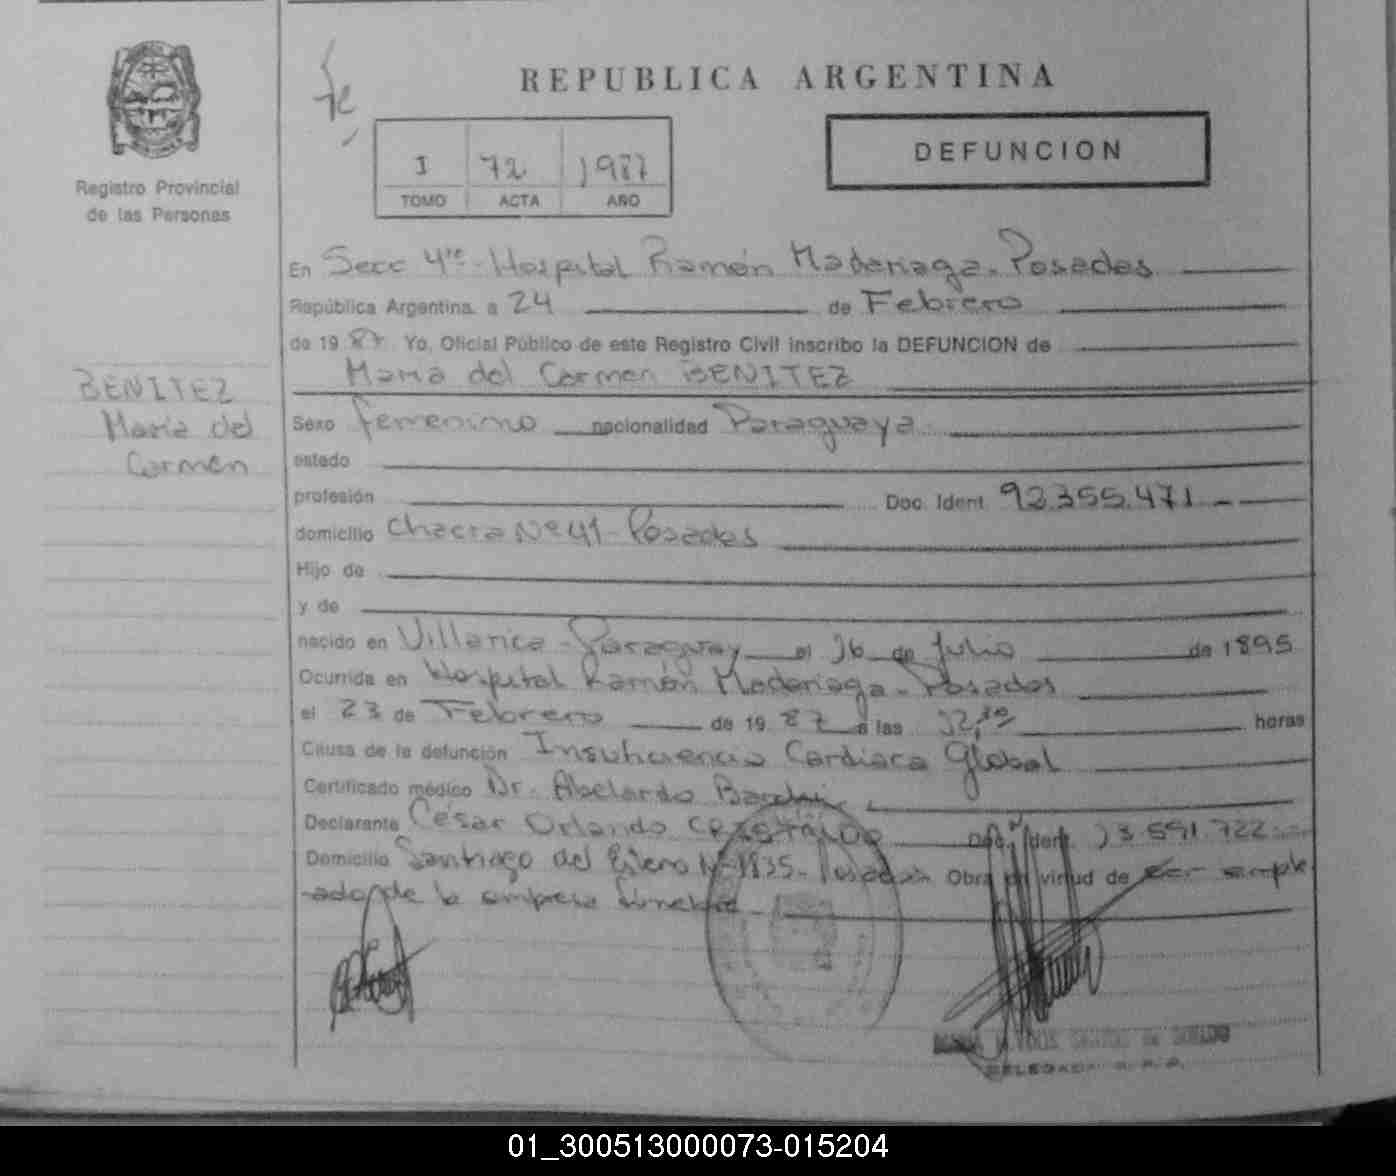 REPUBLICA ARGENTINA
Registro Provincial
de las Personas
I 72 1987
TOMO ACTA AÑO
DEFUNCION
En Secc 4ta - Hospital Ramón Madariaga - Posadas
República Argentina, a 24 de Febrero
de 1987 Yo, Oficial Público de este Registro Civil inscribo la DEFUNCION de
María del Carmen BENITEZ
BENITEZ
María del
Carmen
Sexo femenino nacionalidad Paraguaya
estado
profesión Doc. Ident. 92.355.471
domicilio Chacra Nº 41 - Posadas
Hijo de
y de
nacido en Villarica - Paraguay el 16 de Julio de 1895
Ocurrida en Hospital Ramón Madariaga - Posadas
el 23 de Febrero de 1987 a las 12,30 horas
Causa de la defunción Insuficiencia Cardiaca Global
Certificado médico Dr. Abelardo
Declarante César Orlando Doc. Ident. 13.591.722
Domicilio Santiago del Estero Nº 1835 - Posadas Obra en virtud de ser emple
-ado de la empresa fúnebre
DELEGADA R.P.P.
01_300513000073-015204